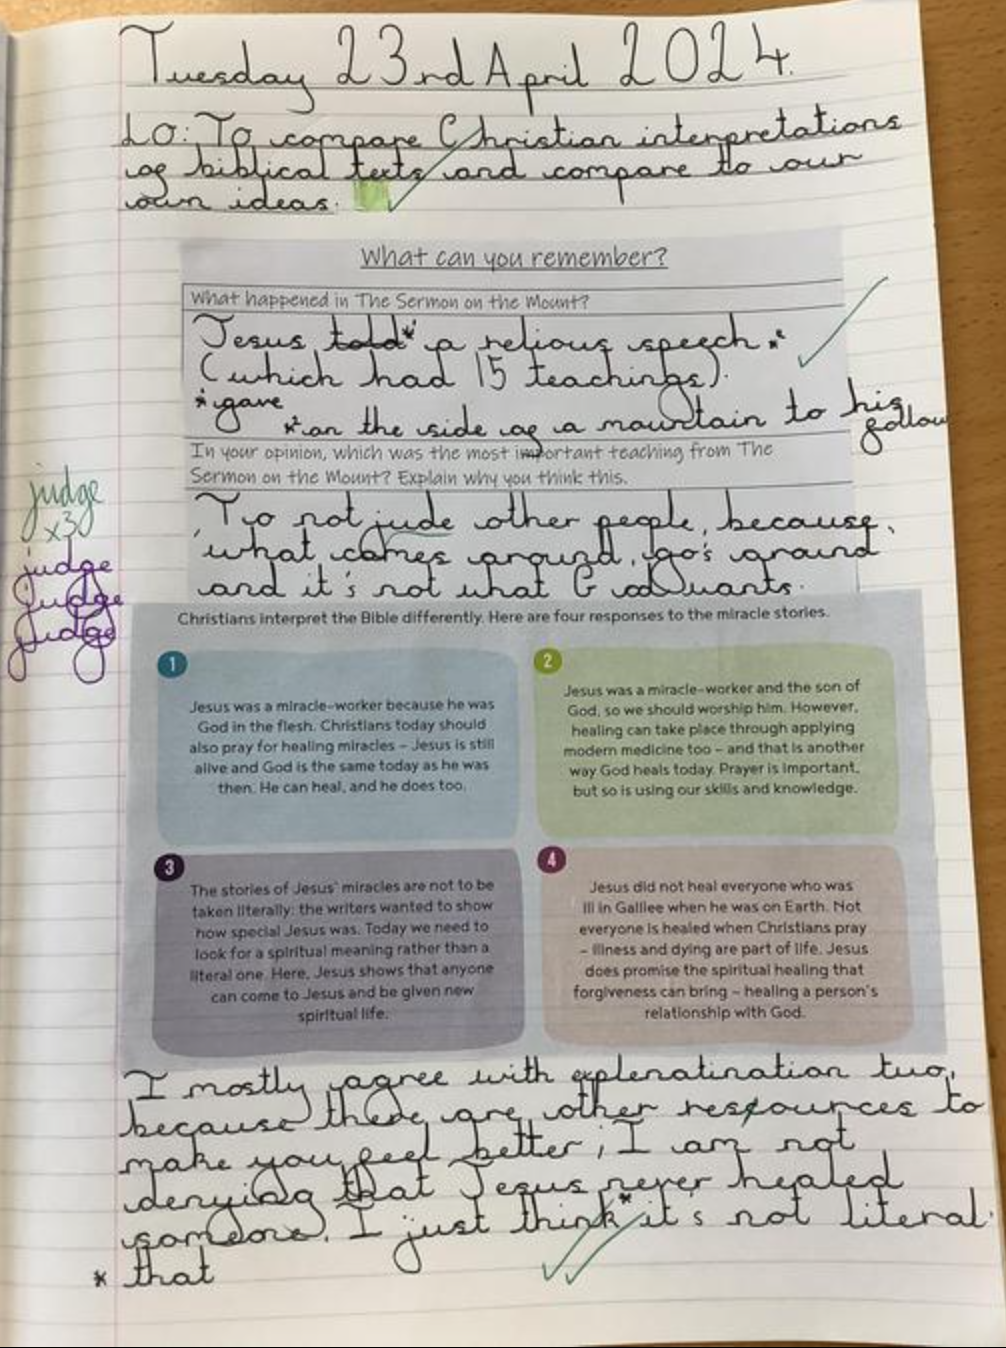 Tuesday 23rd April 2024.
LO: To compare Christian interpretations
of biblical texts and compare to our
own ideas.
What can you remember?
What happened in The Sermon on the Mount?
Jesus told* a relious speech.*²
(which had 15 teachings).
* gave
*² on the side of a mountain to his
follow
In your opinion, which was the most important teaching from The
Sermon on the Mount? Explain why you think this.
judge
x3
judge
judge
judge
To not jude other people, because,
what comes around, go's around
and it's not what God wants.
Christians interpret the Bible differently. Here are four responses to the miracle stories.
1
Jesus was a miracle-worker because he was
God in the flesh. Christians today should
also pray for healing miracles – Jesus is still
alive and God is the same today as he was
then. He can heal, and he does too.
2
Jesus was a miracle-worker and the son of
God, so we should worship him. However,
healing can take place through applying
modern medicine too – and that is another
way God heals today. Prayer is important,
but so is using our skills and knowledge.
3
The stories of Jesus' miracles are not to be
taken literally: the writers wanted to show
how special Jesus was. Today we need to
look for a spiritual meaning rather than a
literal one. Here, Jesus shows that anyone
can come to Jesus and be given new
spiritual life.
4
Jesus did not heal everyone who was
ill in Galilee when he was on Earth. Not
everyone is healed when Christians pray
– illness and dying are part of life. Jesus
does promise the spiritual healing that
forgiveness can bring – healing a person's
relationship with God.
I mostly agree with explenatination two,
because there are other resources to
make you feel better; I am not
denying that Jesus never healed
someone. I just think* it's not literal.
* that